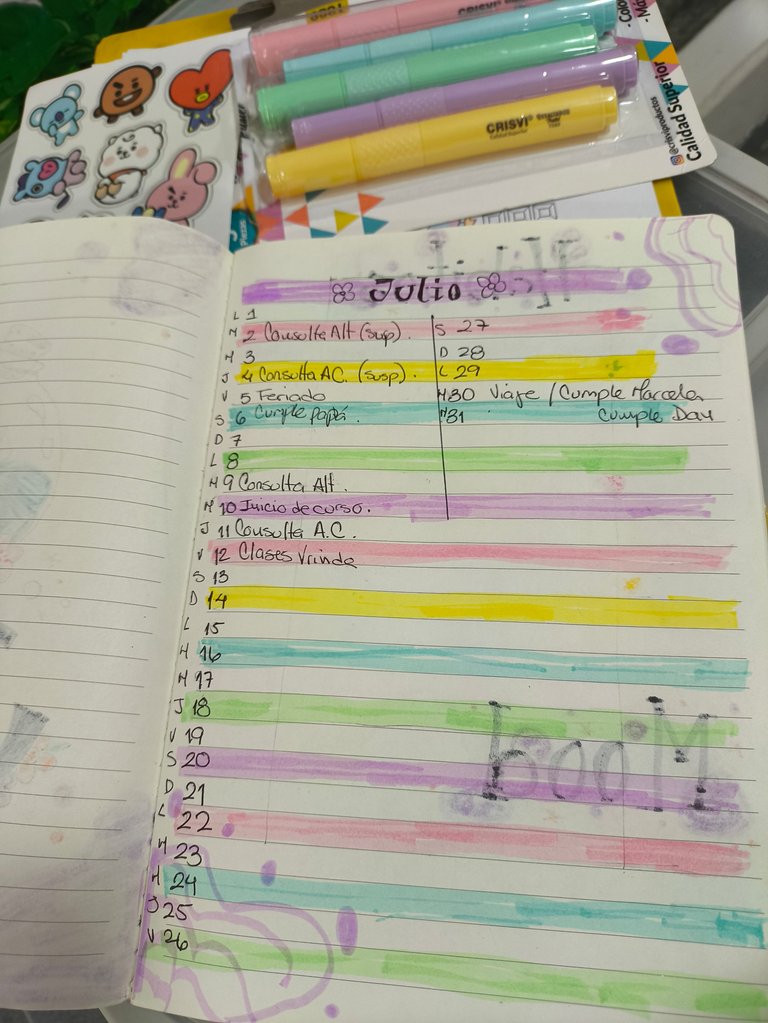 CRISVI
Calidad Superior
@crisviproductos
Calidad Superior
Julio
L 1
M 2 Consulta Alt (susp).
M 3
J 4 Consulta A.C. (susp).
V 5 Feriado
S 6 Cumple papá.
D 7
L 8
M 9 Consulta Alt.
M 10 Inicio de curso.
J 11 Consulta A.C.
V 12 Clases Vrinda
S 13
D 14
L 15
M 16
M 17
J 18
V 19
S 20
D 21
L 22
M 23
M 24
J 25
V 26
S 27
D 28
L 29
M 30 Viaje / Cumple Marcela
M 31 Cumple Day
Mood